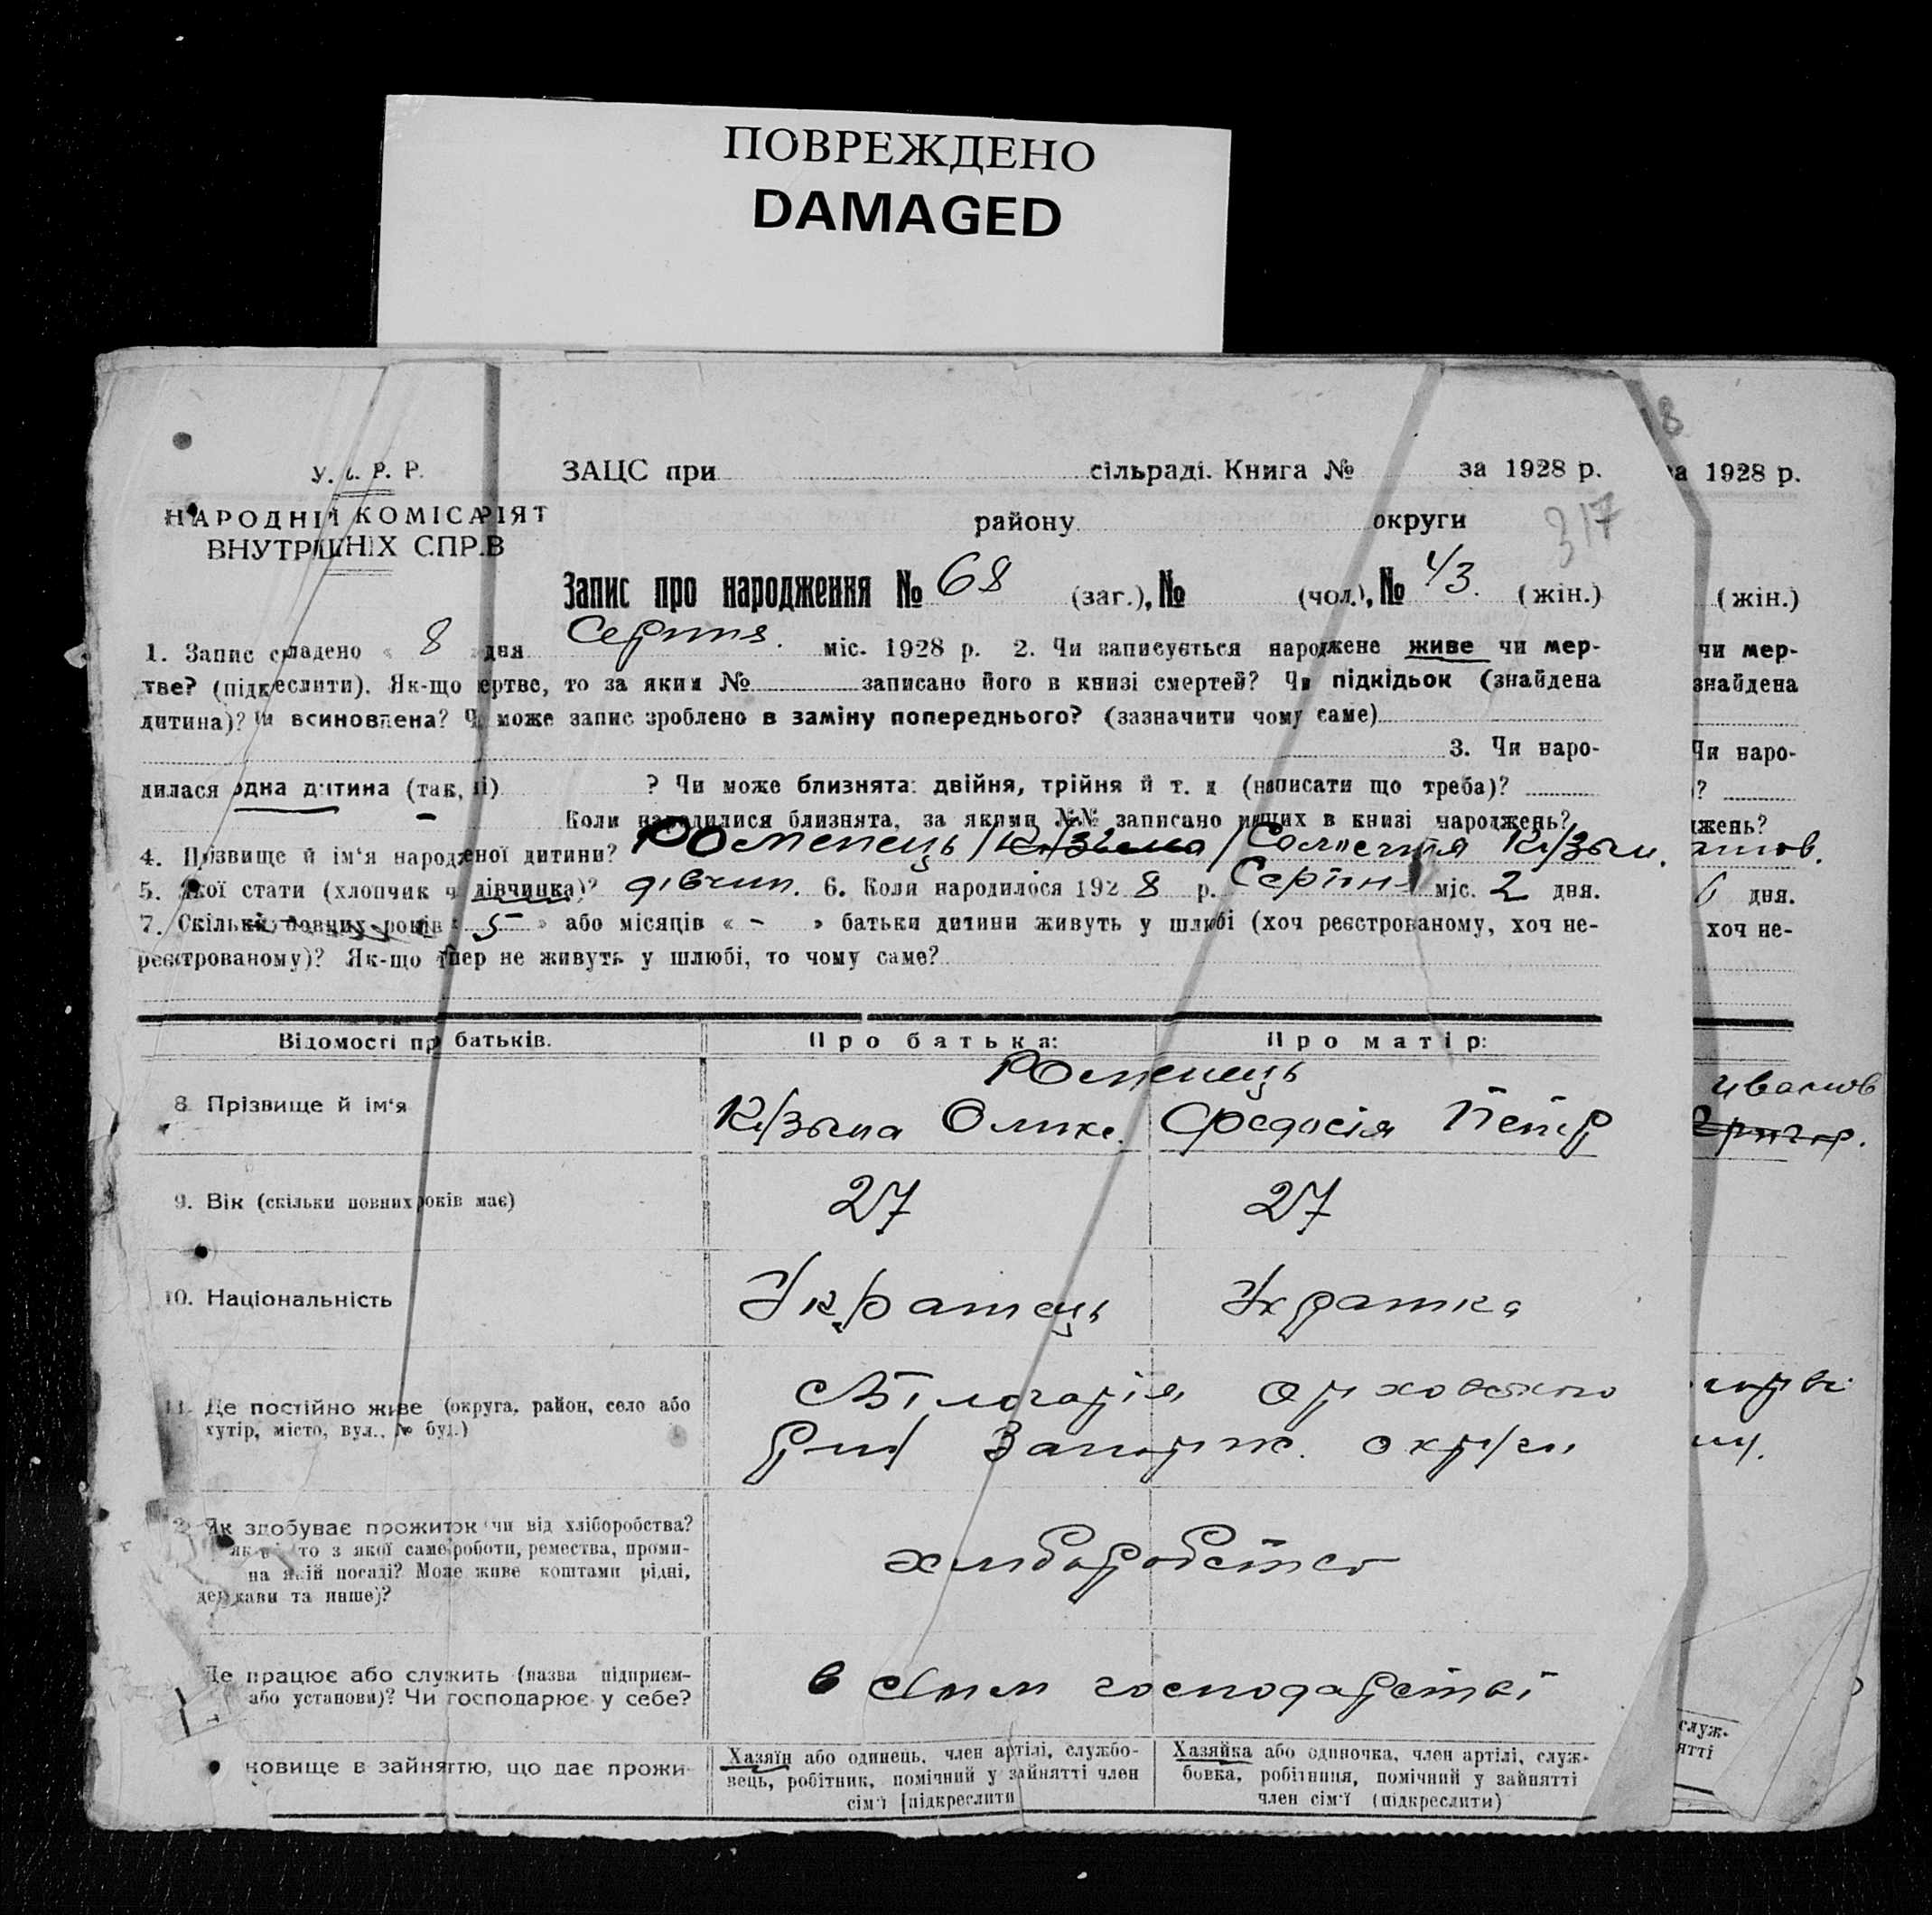 ПОВРЕЖДЕНО
DAMAGED
8
У. С. Р. Р. ЗАЦС при сільраді. Книга № за 1928 р. за 1928 р.
НАРОДНІЙ КОМІСАРІЯТ району округи 317
ВНУТРІШНІХ СПРАВ
Запис про народження № 68 (заг.), № (чол.), № 43. (жін.) (жін.)
1. Запис складено « 8 » дня Серпня. міс. 1928 р. 2. Чи записується народжене живе чи мер- чи мер-
тве? (підкреслити). Як-що мертве, то за яким № записано його в книзі смертей? Чи підкідьок (знайдена знайдена
дитина)? Чи всиновлена? Чи може запис зроблено в заміну попереднього? (зазначити чому саме)
3. Чи наро- Чи наро-
дилася одна дитина (так, ні) ? Чи може близнята: двійня, трійня й т. д (написати що треба)? ?
Коли народилися близнята, за якими №№ записано инших в книзі народжень? джень?
4. Прізвище й ім'я народженої дитини? Роменець /Кузьма/ Кузьм.
5. Якої стати (хлопчик ч дівчинка)? дівчин. 6. Коли народилося 1928 р. Серпня міс. 2 дня. 6 дня.
7. Скільки повних років « 5 » або місяців « - » батьки дитини живуть у шлюбі (хоч реєстрованому, хоч не- хоч не-
реєстрованому)? Як-що тепер не живуть у шлюбі, то чому саме?
Відомості про батьків. Про батька: Про матір:
Роменець
8 Прізвище й ім'я Кузьма Федосія Петр
Григор.
9. Вік (скільки повних років має) 27 27
10. Національність Українець Українка
11. Де постійно живе (округа, район, село або
хутір, місто, вул., № буд.)
Запорж. округи
Як здобуває прожиток чи від хліборобства?
як ні то з якої саме роботи, ремества, проми-
на якій посаді? Може живе коштами рідні,
держави та инше)?
хліборобство
Де працює або служить (назва підприєм-
або установи)? Чи господарює у себе?
в своім господарстві
новище в зайняттю, що дає прожи- Хазяїн або одинець, член артілі, службо- Хазяйка або одиночка, член артілі, служ- служ-
вець, робітник, помічний у зайнятті член бовка, робітниця, помічний у зайнятті ятті
сім'ї [підкреслити член сім'ї (підкреслити)